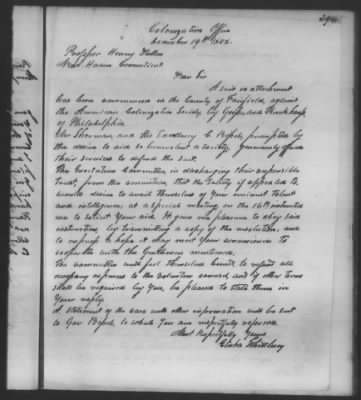 294
Colonization Office
December 19th 1853.
Professor Henry Dutton
New Haven Connecticut
Dear Sir
A suit in attachment
has been commenced in the County of Fairfield, against
the American Colonization Society, by
of Philadelphia
Mr Sherman and His Excellency C. Bissell, prompted by
the desire to aid so benevolent a society, generously offered
their services to defend the suit.
The Executive Committee in discharging their responsible
trust, from the conviction that the Society if appealed to,
would desire to avail themselves of your eminent talent
and intelligence; at a special meeting on the 16th instructed
me to solicit Your aid. It gives me pleasure to obey said
instruction by transmitting a copy of the resolution, and
to express a hope it may meet Your convenience to
cooperate with the Gentlemen mentioned.
The committee will feel themselves bound, to refund all
necessary expenses to the volunteer counsel, and if other terms
shall be required by You, be pleased to state them in
Your reply.
A statement of the case with other information will be sent
to Gov Bissell, to which You are respectfully referred.
Most Respectfully Yours
Elisha Whittlesey